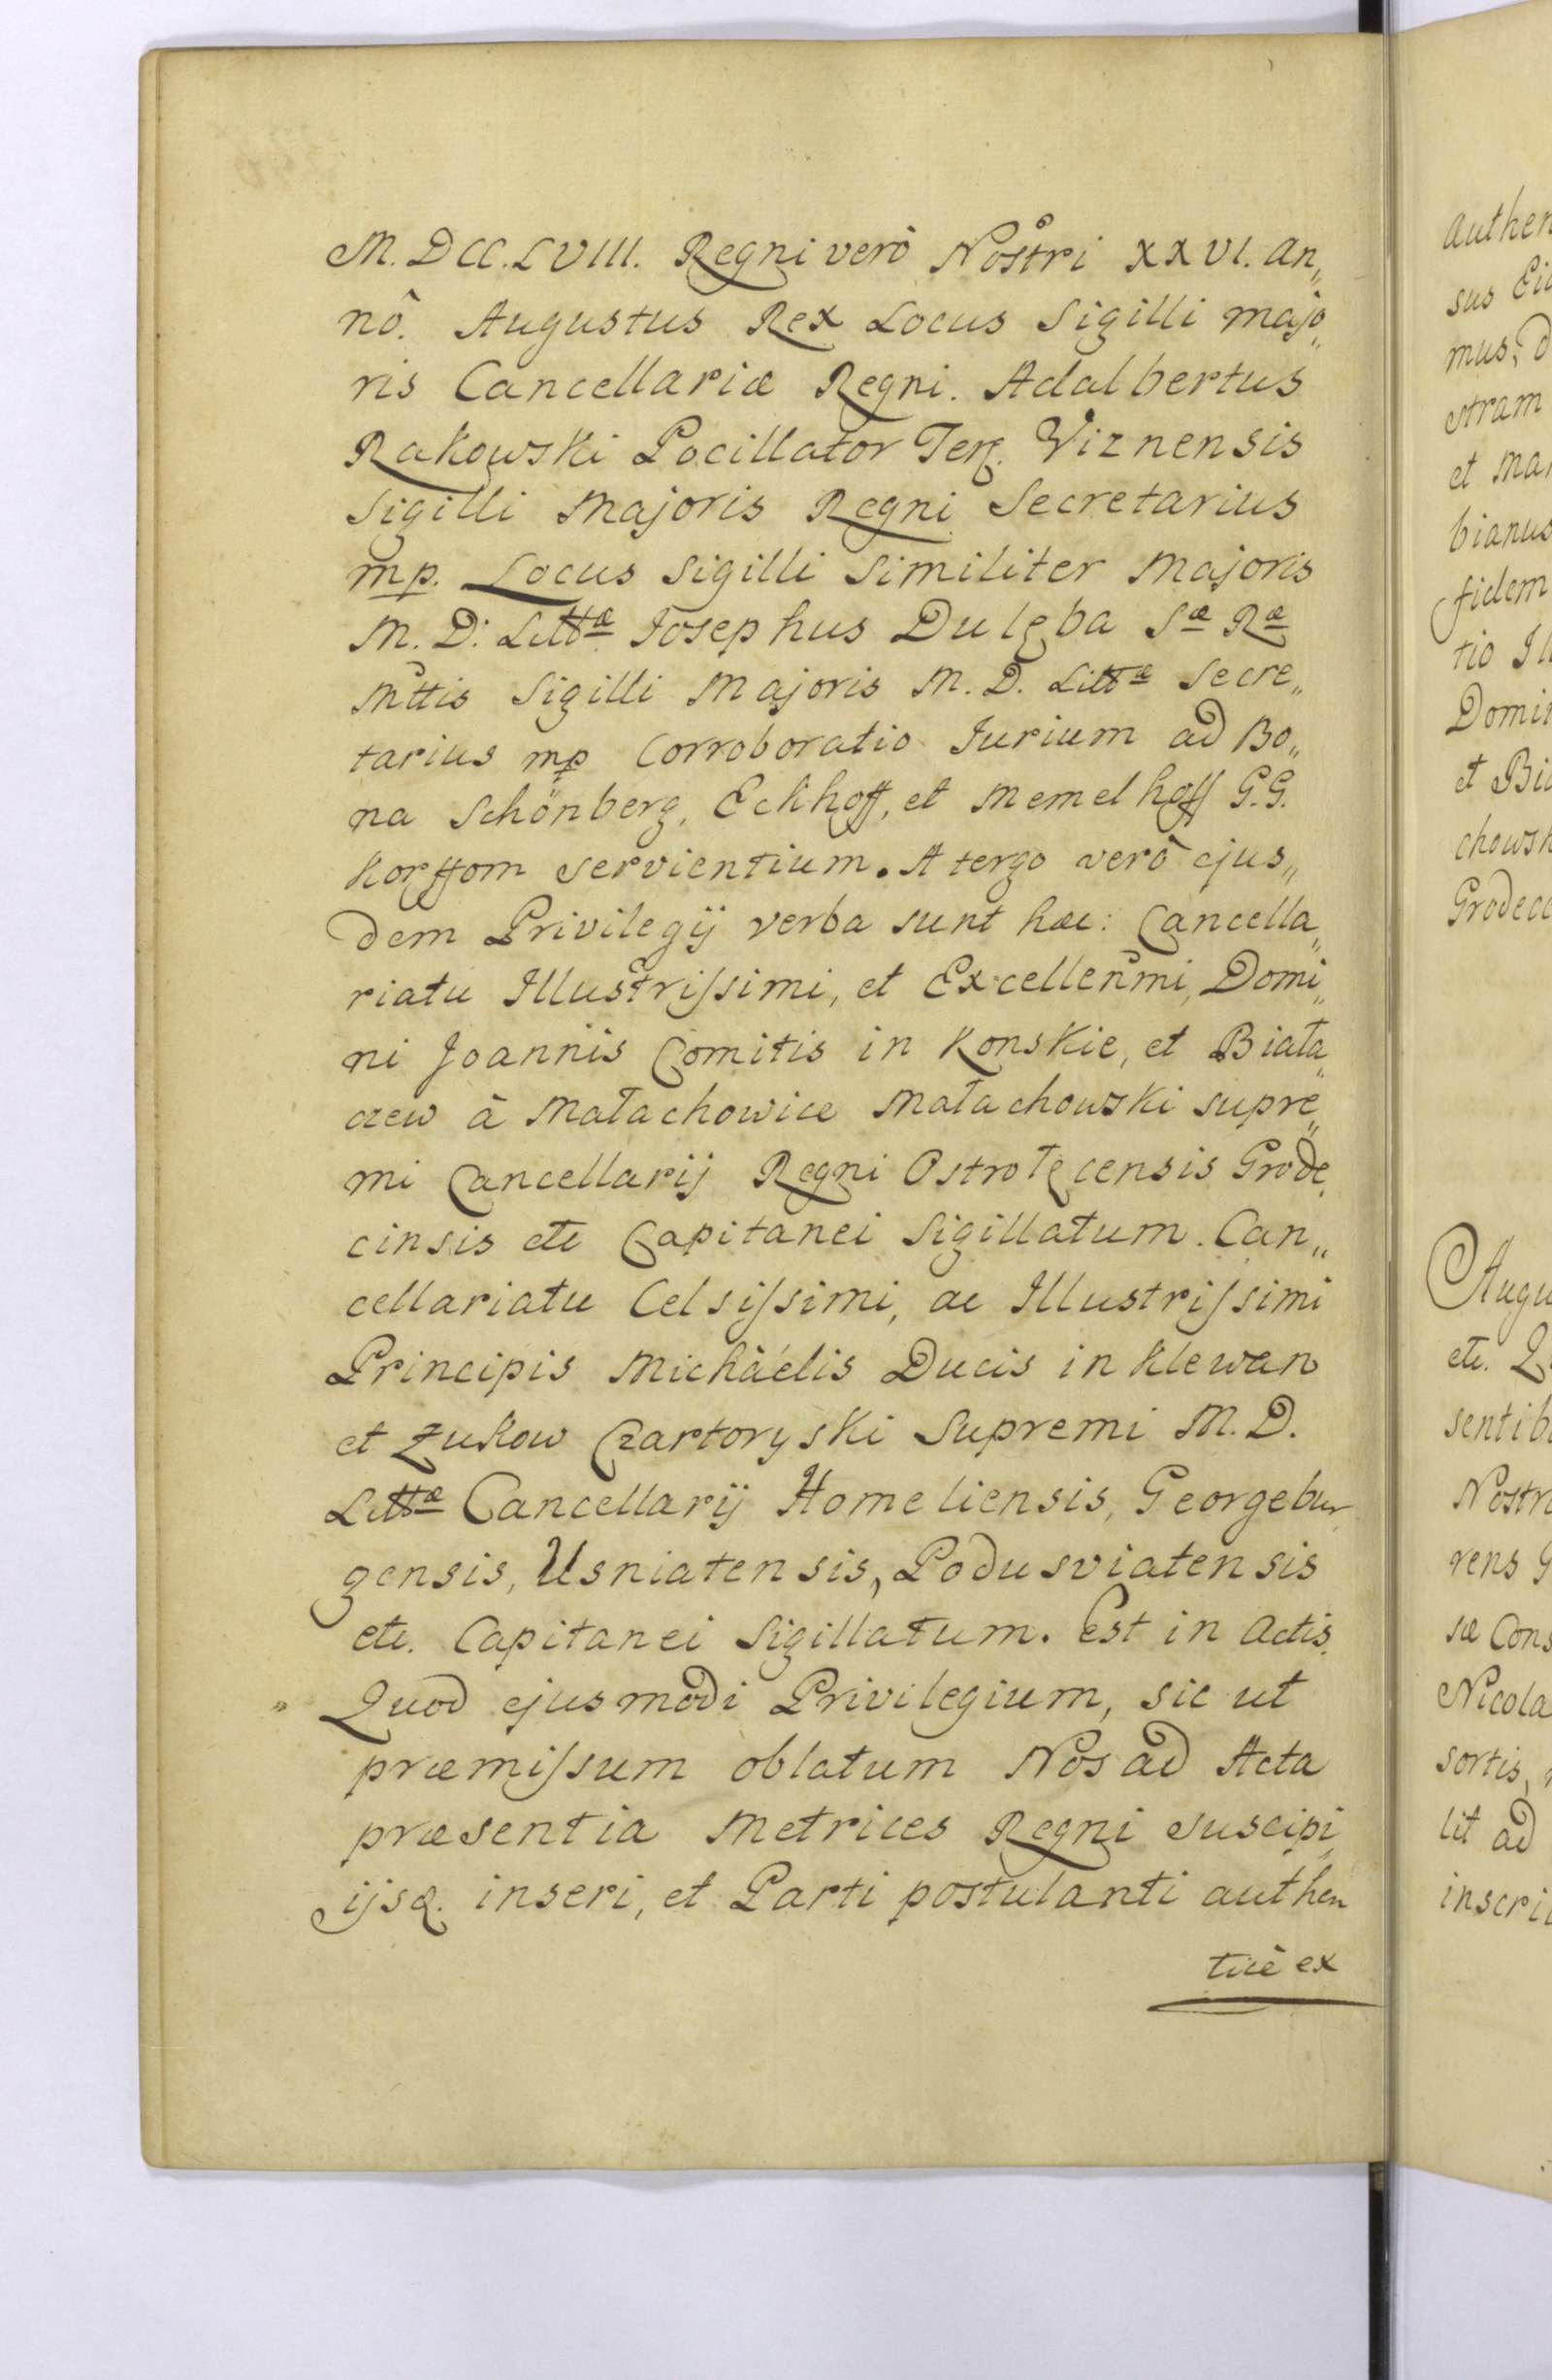 M. DCC. LVIII. Regni verò Nostri XXVI. An„
nô. Augustus Rex Locus Sigilli majo„
ris Cancellariæ Regni. Adalbertus
Rakowski Pocillator Terr. Viznensis
Sigilli Majoris Regni Secretarius
mp. Locus Sigilli Similiter Majoris
M. D. Littæ Josephus Dulęba Sæ Ræ
Mttis Sigilli Majoris M. D. Littæ Secre„
tarius mp Corroboratio Jurium ad Bo„
na Schönberg, Eckhoff, et Memelhoff G.G.
Korffom servientium. A tergo verò ejus„
dem Privilegij verba sunt hæc: Cancella„
riatu Illustrissimi, et Excellenmi, Domi„
ni Joannis Comitis in Konskie, et Biała„
czew à Małachowice Małachowski supre„
mi Cancellarij Regni Ostrołęcensis Grode„
cinsis etc Capitanei Sigillatum. Can„
cellariatu Celsissimi, ac Illustrissimi
Principis Michàélis Ducis in Klewan
et Zukow Czartoryski Supremi M. D.
Littæ Cancellarij Homeliensis, Georgebur„
gensis, Usniatensis, Podusviatensis
etc. Capitanei Sigillatum. Est in Actis.
Quod ejusmodi Privilegium, sic ut
præmissum oblatum Nos ad Acta
præsentia Metrices Regni suscipi„
ijsq. inseri, et Parti postulanti authen
ticè ex
authen
sus
mus,
stram
et
bianus
fidem
tio
Domin
et
chowsk
Grodecc
Augu
etc.
sentib
Nostr
rens
sæ Cons
Nicola
sortis,
lit ad
inscri